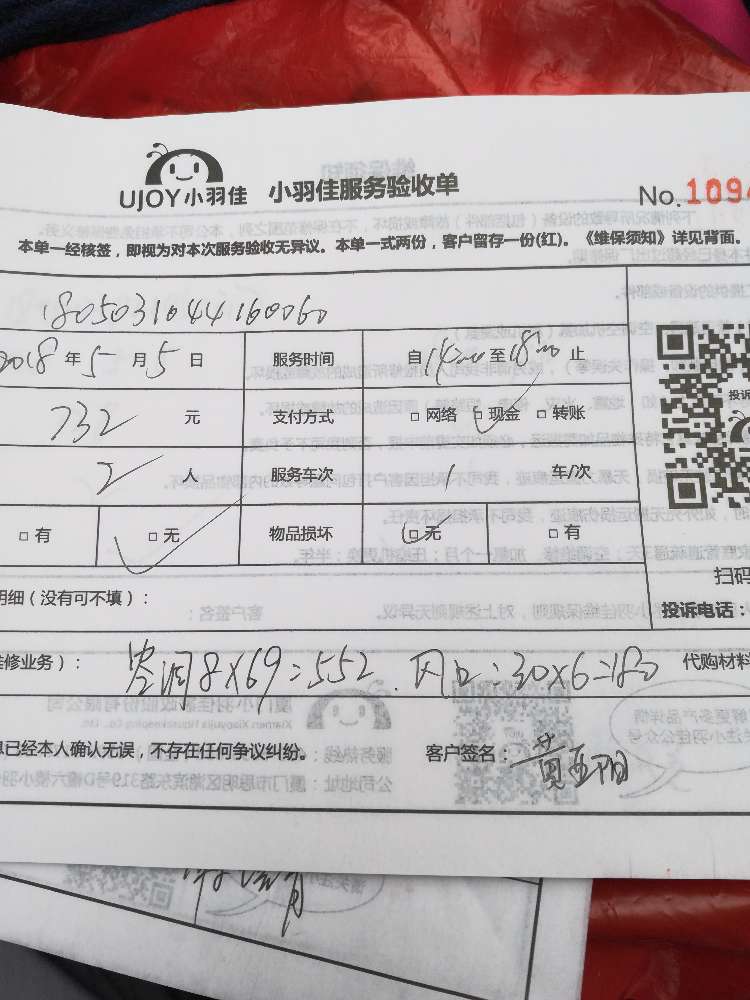 UJOY小羽佳 小羽佳服务验收单 No.1094
本单一经核签，即视为对本次服务验收无异议。本单一式两份，客户留存一份(红)。《维保须知》详见背面。
1805031044160060
2018年5月5日 服务时间 自14:00至18:00止
732元 支付方式 □网络 □现金 □转账
投诉
2人 服务车次 1车/次
□有 □无 物品损坏 □无 □有
扫码
明细（没有可不填）：
投诉电话：
维修业务）： 8×69=552. 风口：30×6=180 代购材料
息已经本人确认无误，不存在任何争议纠纷。 客户签名：黄亚阳